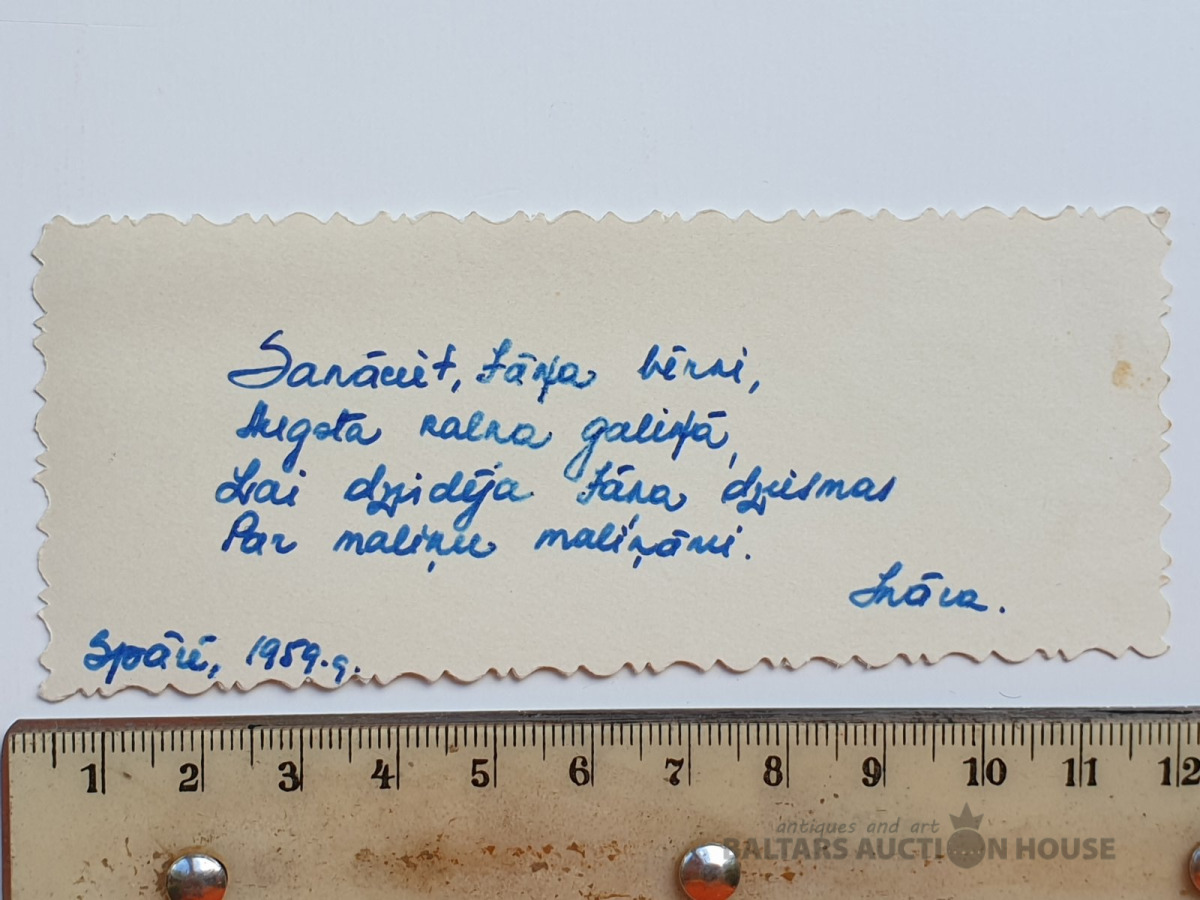 Sanāciet, Jāņa bērni,
Augsta kalna galiņā,
Lai dzidēja Jāņa dziesmas
Par maliņu maliņāmi.
Ināra.
Spārē, 1959.g.
1 2 3 4 5 6 7 8 9 10 11 12
antiques and art
BALTARS AUCTION HOUSE